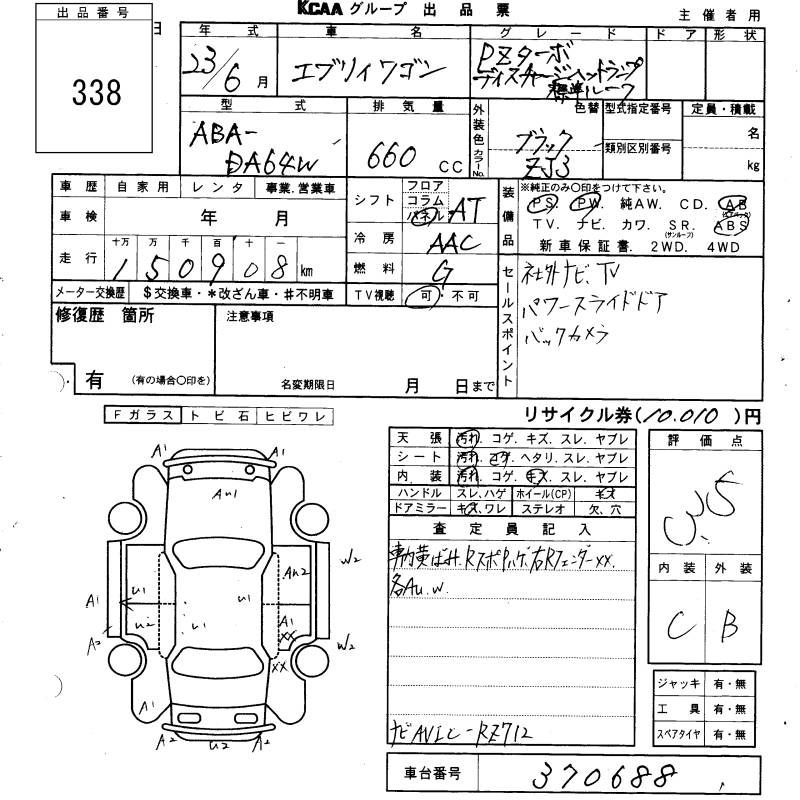 出品番号
338
日
KCAAグループ 出品票
主催者用
年式 車名 グレード ドア 形状
23/6月 エブリイワゴン PZターボ
ディスチャージヘッドランプ
標準ルーフ
型式 排気量 外装色 色替 型式指定番号 定員・積載
ABA-
DA64W
660 CC
カラーNo.
ブラック
ZJ3
類別区別番号
名
kg
車歴 自家用 レンタ 事業.営業車
車検 年 月
走行 十万 万 千 百 十 一
150908 km
メーター交換歴 $交換車・*改ざん車・#不明車
シフト フロア コラム パネル AT
冷房 AAC
燃料 G
TV視聴 可・不可
装備品
※純正のみ○印をつけて下さい。
PS. PW. 純AW. CD. AB (エアバック)
TV. ナビ. カワ. SR. (サンルーフ) ABS
新車保証書. 2WD. 4WD
セールスポイント
社外ナビ、TV
パワースライドドア
バックカメラ
修復歴 箇所
有 (有の場合○印を)
注意事項
名変期限日 月 日まで
Fガラス トビ石 ヒビワレ
リサイクル券(10.010)円
天張 汚れ. コゲ. キズ. スレ. ヤブレ
シート 汚れ. コゲ. ヘタリ. スレ. ヤブレ
内装 汚れ. コゲ. キズ. スレ. ヤブレ
ハンドル スレ.ハゲ ホイール(CP) キズ
ドアミラー キズ.ワレ ステレオ 欠、穴
査定員記入
車内黄ばみ.RスポPハゲ.右Rフェンダーxx.
各Au.w.
ナビAVIC-RZ712
評価点
3.5
内装 外装
C B
ジャッキ 有・無
工具 有・無
スペアタイヤ 有・無
車台番号 370688
A1 A1
Au1
W2
Au2
A1 U1 U1
U2 U1 A1
xx
A2 W2
xx
A1 A1
A2 U2 A2